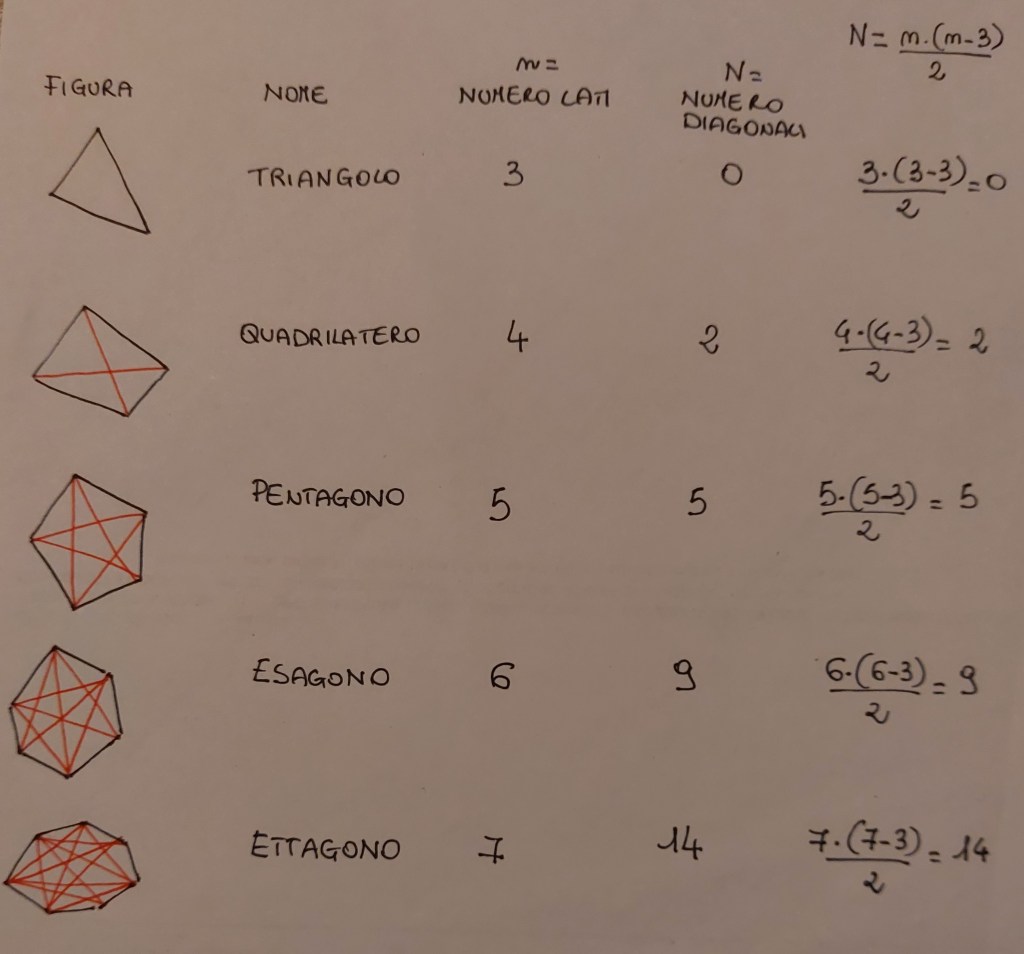 FIGURA
NOME
n=
NUMERO LATI
N=
NUMERO
DIAGONALI
N= n·(n-3)
2
TRIANGOLO 3 0 3·(3-3)=0
2
QUADRILATERO 4 2 4·(4-3)= 2
2
PENTAGONO 5 5 5·(5-3) = 5
2
ESAGONO 6 9 6·(6-3)= 9
2
ETTAGONO 7 14 7·(7-3)= 14
2